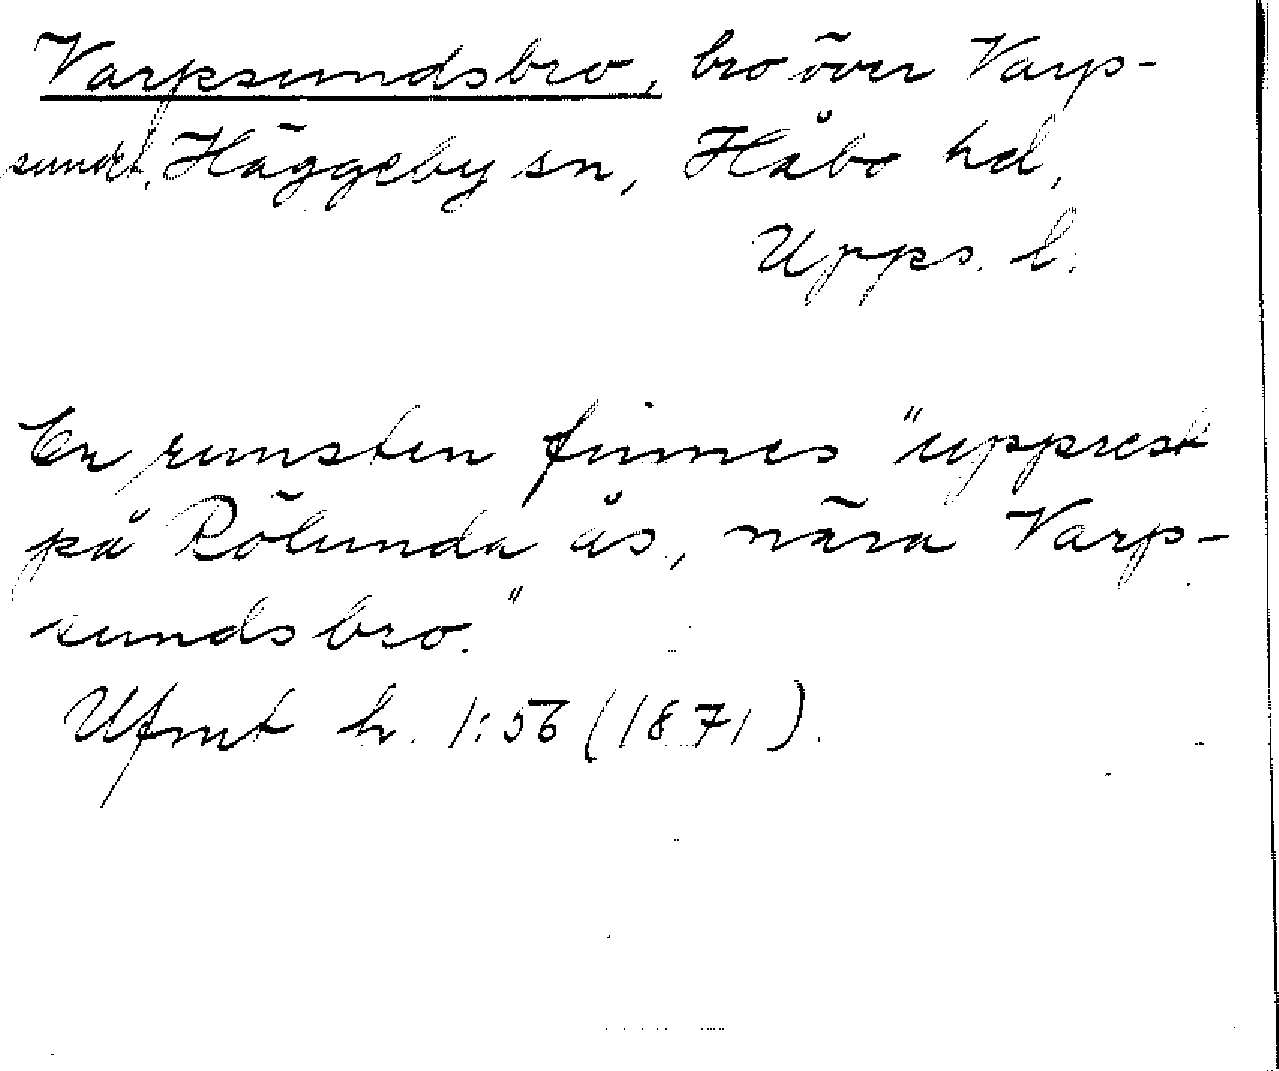 Varpsundsbro, bro över Varp-
sundet, Häggeby sn, Håbo hd,
Upps. l.
En runsten finnes "upprest
på Rölunda ås, nära Varp-
sundsbro."
Ufmt h. 1:56 (1871).